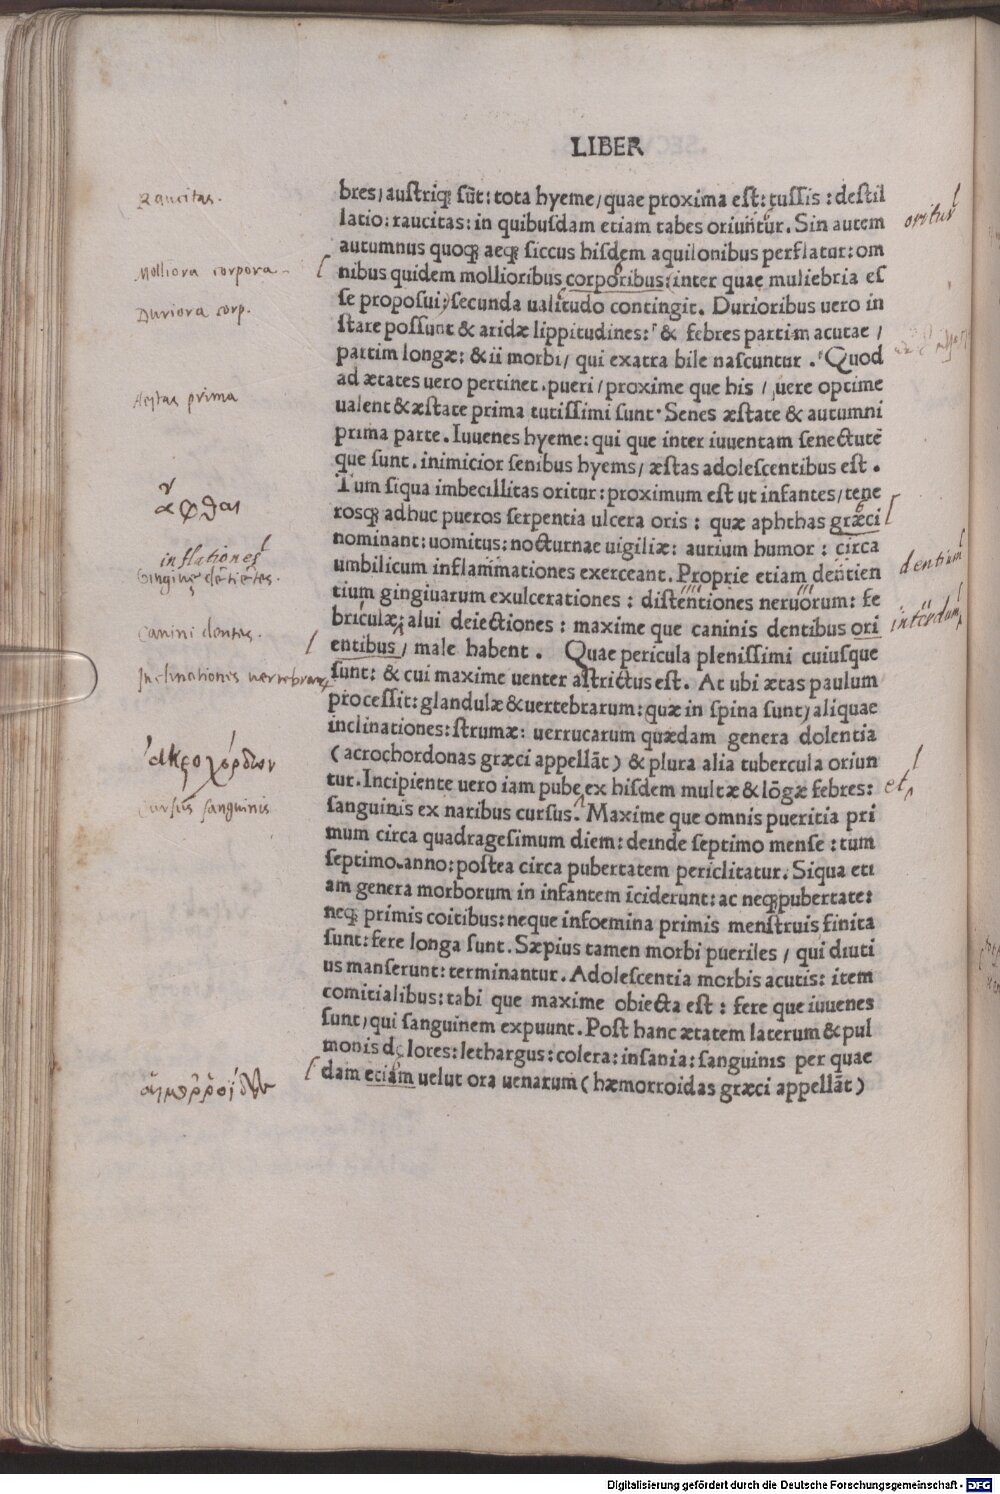 LIBER
bres/ austriq; sūt: tota hyeme/ quae proxima est: tussis: destil
latio: raucitas: in quibusdam etiam tabes oriuntur. Sin autem
autumnus quoq; aeq; siccus hisdem aquilonibus perflatur: om
nibus quidem mollioribus corporibus: inter quae muliebria es
se proposui/ secunda ualitudo contingit. Durioribus uero in
stare possunt & aridæ lippitudines: & febres partim acutae /
partim longæ: & ii morbi/ qui exatra bile nascuntur. Quod
ad ætates uero pertinet. pueri/ proxime que his / uere optime
ualent & æstate prima tutissimi sunt. Senes æstate & autumni
prima parte. Iuuenes hyeme: qui que inter iuuentam senectutē
que sunt. inimicior senibus hyems/ æstas adolescentibus est.
Tum siqua imbecillitas oritur: proximum est ut infantes/ tene
rosq; adhuc pueros serpentia ulcera oris: quæ aphthas græci
nominant: uomitus: nocturnae uigiliæ: aurium humor: circa
umbilicum inflammationes exerceant. Proprie etiam dentien
tium gingiuarum exulcerationes: distentiones neruorum: fe
briculæ: alui deiectiones: maxime que caninis dentibus ori
entibus/ male habent. Quae pericula plenissimi cuiusque
sunt: & cui maxime uenter astrictus est. At ubi ætas paulum
processit: glandulæ & uertebrarum: quæ in spina sunt/ aliquae
inclinationes: strumæ: uerrucarum quædam genera dolentia
(acrochordonas græci appellāt) & plura alia tubercula oriun
tur. Incipiente uero iam pube ex hisdem multæ & lōgæ febres:
sanguinis ex naribus cursus. Maxime que omnis pueritia pri
mum circa quadragesimum diem: deinde septimo mense: tum
septimo anno: postea circa pubertatem periclitatur. Siqua eti
am genera morborum in infantem īciderunt: ac neq; pubertate:
neq; primis coitibus: neque infoemina primis menstruis finita
sunt: fere longa sunt. Sæpius tamen morbi pueriles / qui diuti
us manserunt: terminantur. Adolescentia morbis acutis: item
comitialibus: tabi que maxime obiecta est: fere que iuuenes
sunt/ qui sanguinem expuunt. Post hanc ætatem laterum & pul
monis dolores: lethargus: colera: insania: sanguinis per quae
dam etiam uelut ora uenarum (hæmorroidas græci appellāt)
Raucitas.
Molliora corpora
Duriora corp.
Aestas prima
ἄφθαι
inflationes
Gingiuę dētiētes.
Canini dentes.
Inclinationis uertebrarum
ἀκροχόρδων
Cursus sanguinis
αἱμορροΐδα
oritur
dentium
interdum
et
Digitalisierung gefördert durch die Deutsche Forschungsgemeinschaft - DFG